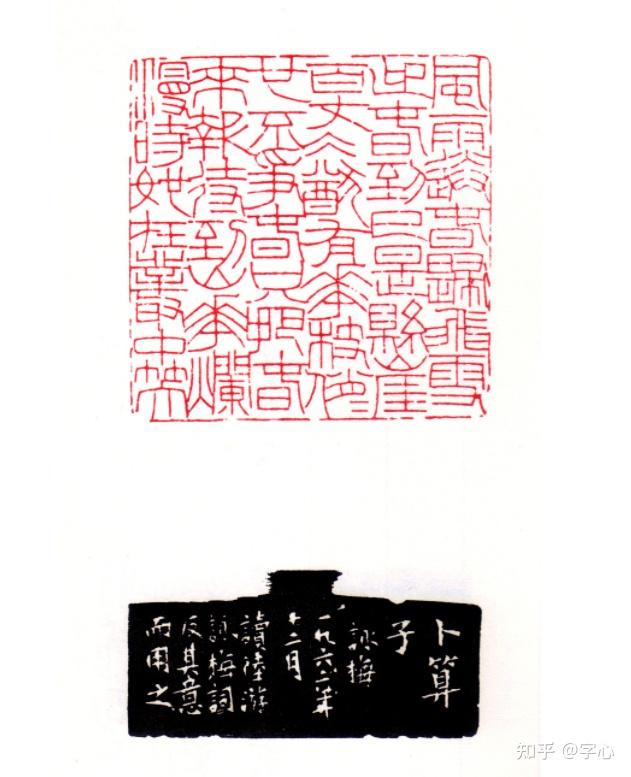 風雨送春歸飛雪
迎春到已是懸崖
百丈冰猶有花枝俏
也不爭春只把春
來報待到山花爛
漫時她在叢中笑
卜算
子
詠梅
一九六一年
十二月
讀陸游
詠梅詞
反其意
而用之
知乎 @字心